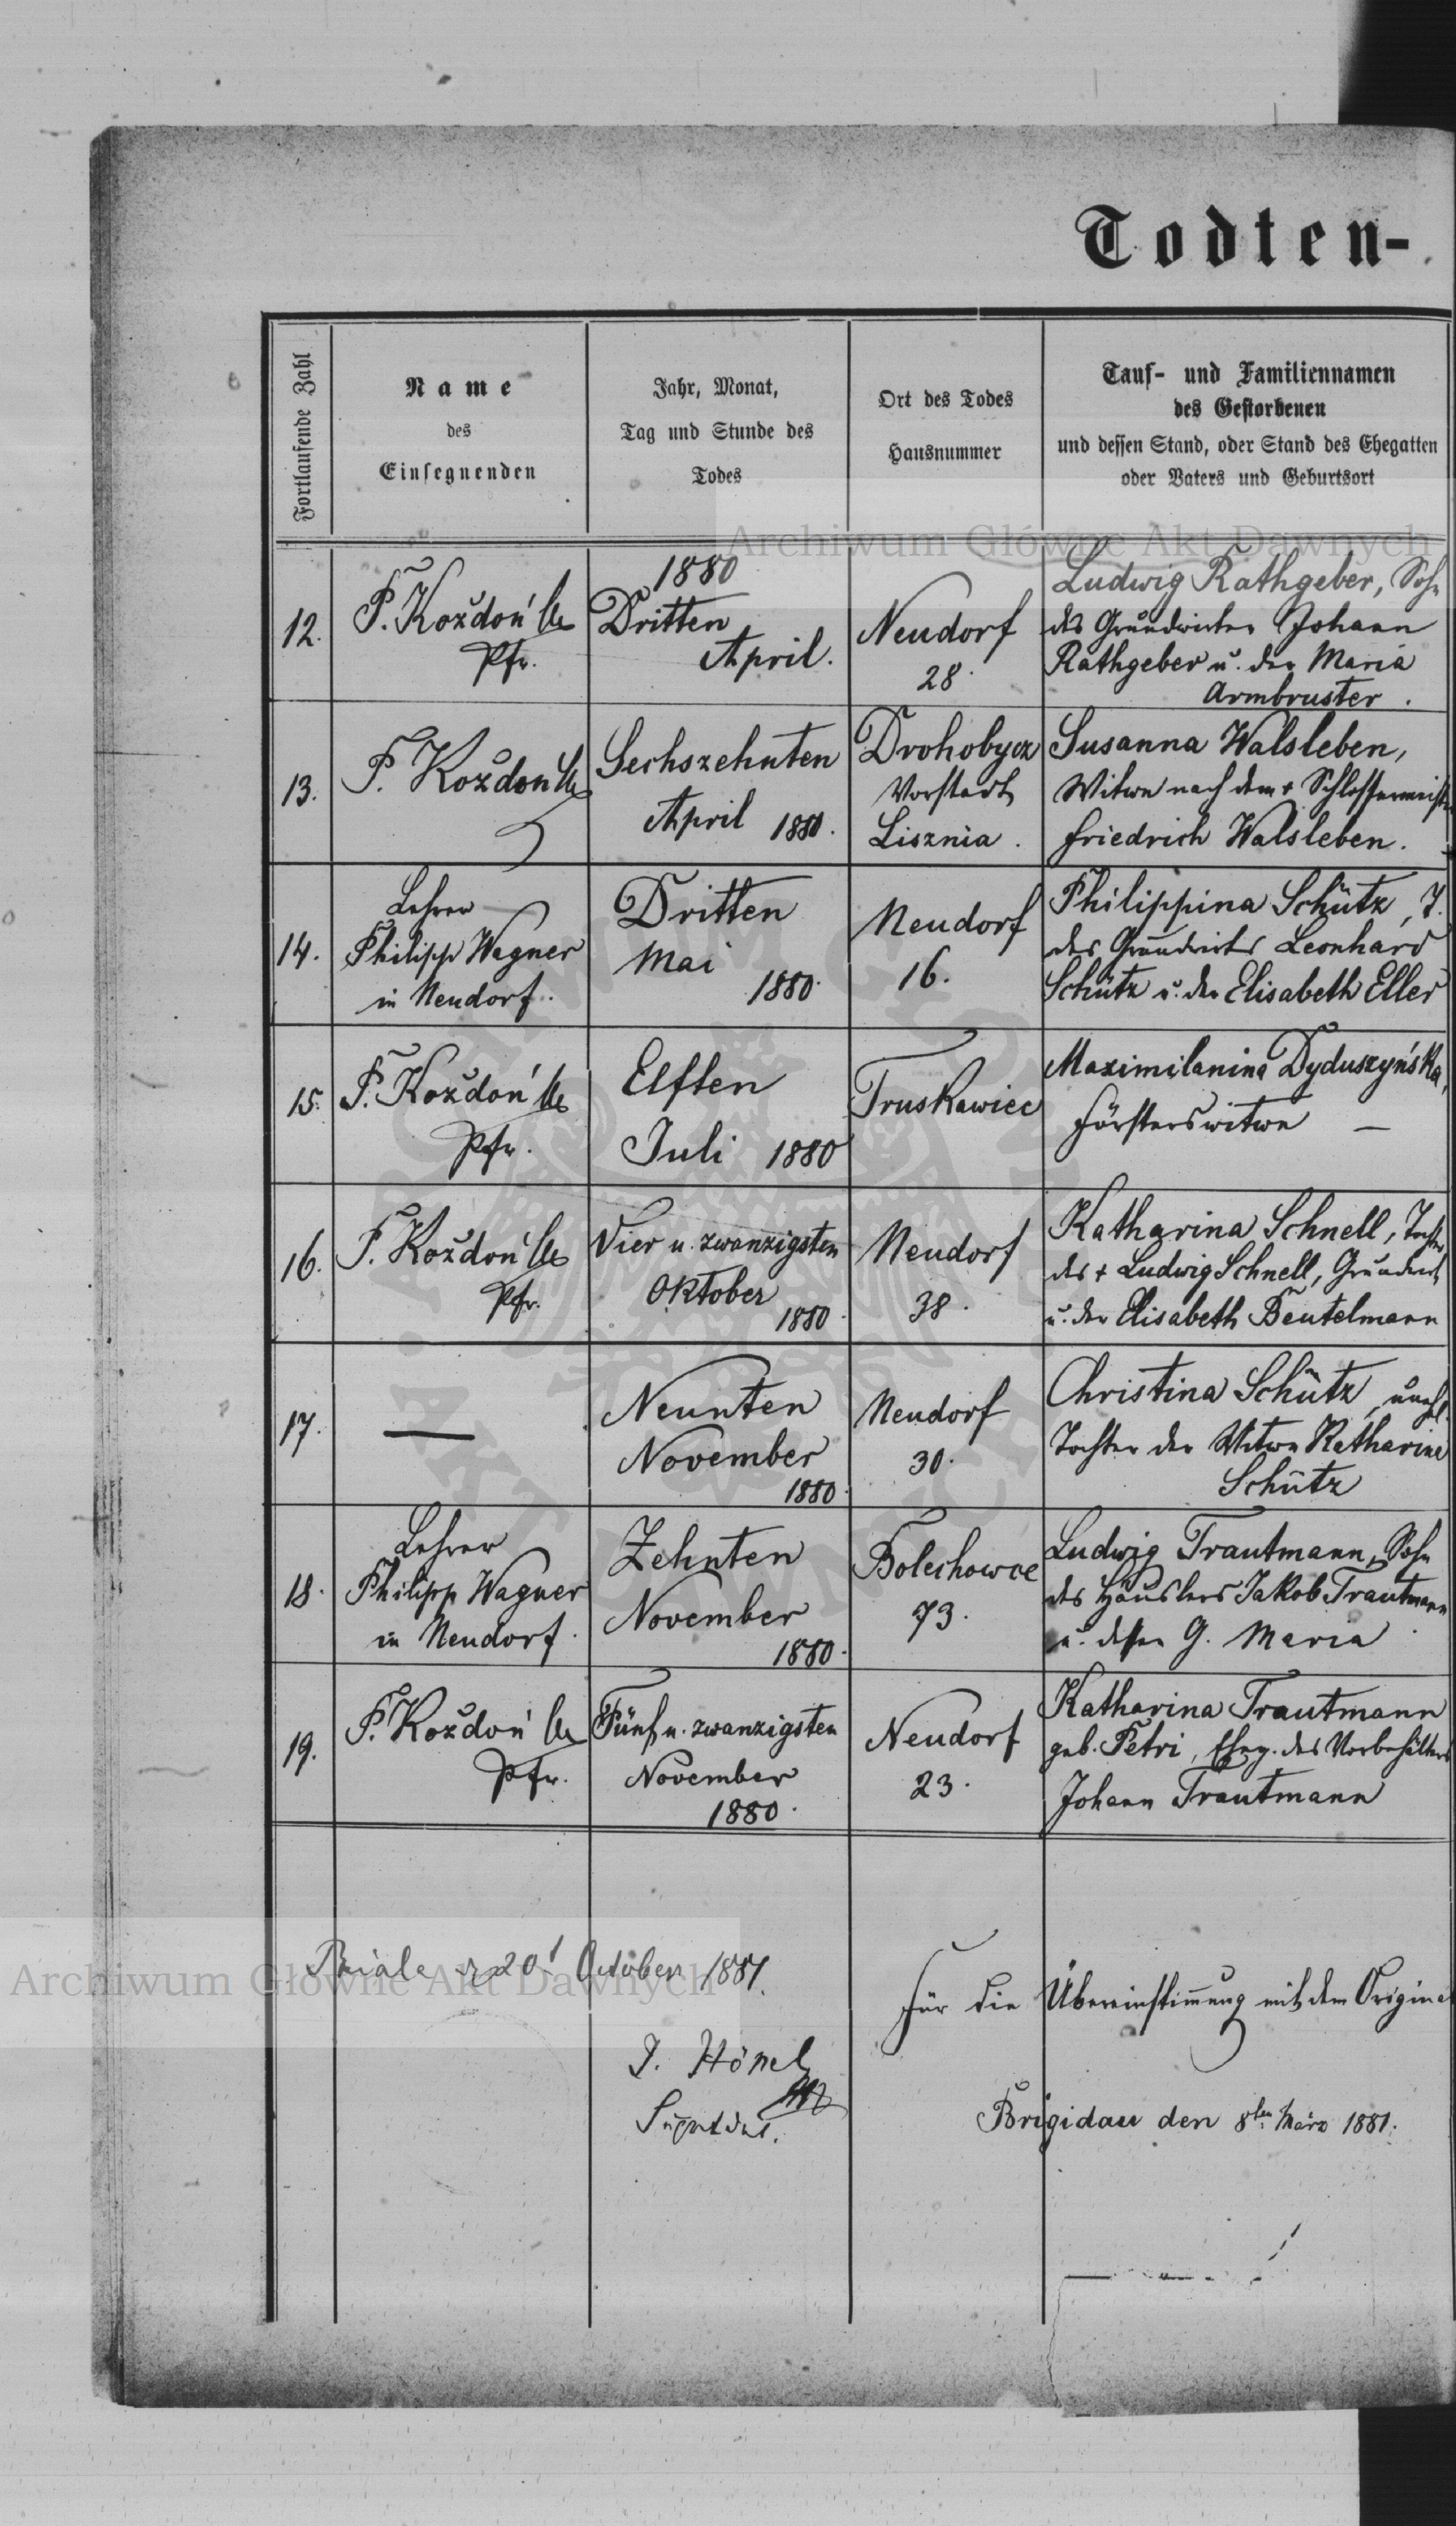 Todten-
Fortlaufende Zahl
Name
des
Einsegnenden
Jahr, Monat,
Tag und Stunde des
Todes
Ort des Todes
Hausnummer
Tauf- und Familiennamen
des Gestorbenen
und dessen Stand, oder Stand des Ehegatten
oder Vaters und Geburtsort
Archiwum Główne Akt Dawnych
12.
F. Kożdoń
Pfr.
1880
Dritten
April.
Neudorf
28.
Ludwig Rathgeber, Sohn
des Grundwirten Johann
Rathgeber u. der Maria
Armbruster.
13.
F. Kożdoń
Sechszehnten
April 1880.
Drohobycz
Vorstadt
Lisznia.
Susanna Walsleben,
Witwe nach dem + Schlossermeister
Friedrich Walsleben.
14.
Lehrer
Philipp Wagner
in Neudorf.
Dritten
Mai
1880.
Neudorf
16.
Philippina Schütz, T.
des Grundwirts Leonhard
Schütz u. der Elisabeth Eller
15.
F. Kożdoń
Pfr.
Elften
Juli 1880
Truskawiec
Maximilanina Dyduszyńska,
Försterswitwe —
16.
F. Kożdoń
Pfr.
Vier u. zwanzigsten
Oktober
1880.
Neudorf
38.
Katharina Schnell, Tochter
des + Ludwig Schnell, Grundwirt
u. der Elisabeth Beutelmann
17.
—
Neunten
November
1880.
Neudorf
30.
Christina Schütz, unehl.
Tochter der Witwe Katharina
Schütz
18.
Lehrer
Philipp Wagner
in Neudorf.
Zehnten
November
1880.
Bolechowce
73.
Ludwig Trautmann, Sohn
des Häuslers Jakob Trautmann
u. dessen G. Maria
19.
F. Kożdoń
Pfr.
Fünf u. zwanzigsten
November
1880.
Neudorf
23.
Katharina Trautmann
geb. Petri, Eheg. des Vorbehälters
Johann Trautmann
Biala 20t October 1881.
Archiwum Główne Akt Dawnych
J. Hönel
Für die Übereinstimmung mit dem Original
Brigidau den 8ten März 1881.